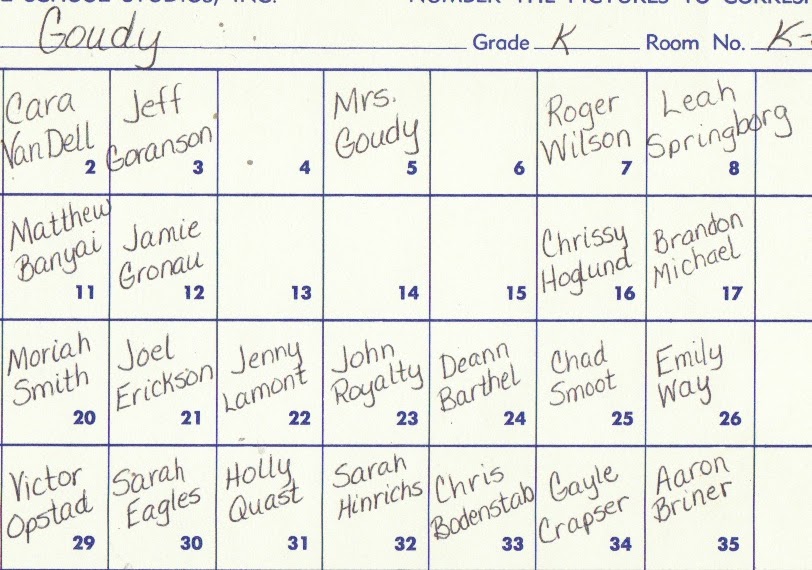 SCHOOL STUDIOS, INC. NUMBER THE PICTURES TO CORRES
Goudy Grade K Room No. K-
Cara VanDell 2
Jeff Goranson 3
4
Mrs. Goudy 5
6
Roger Wilson 7
Leah Springborg 8
Matthew Banyai 11
Jamie Gronau 12
13
14
15
Chrissy Hoglund 16
Brandon Michael 17
Moriah Smith 20
Joel Erickson 21
Jenny Lamont 22
John Royalty 23
Deann Barthel 24
Chad Smoot 25
Emily Way 26
Victor Opstad 29
Sarah Eagles 30
Holly Quast 31
Sarah Hinrichs 32
Chris Bodenstab 33
Gayle Crapser 34
Aaron Briner 35